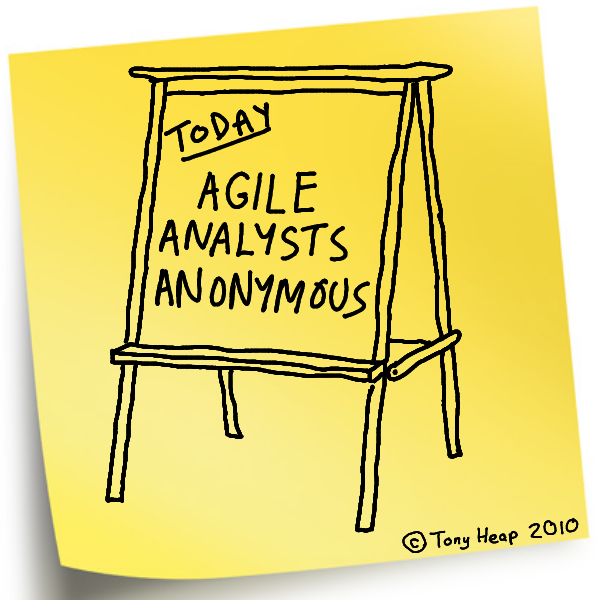 TODAY
AGILE
ANALYSTS
ANONYMOUS
© Tony Heap 2010